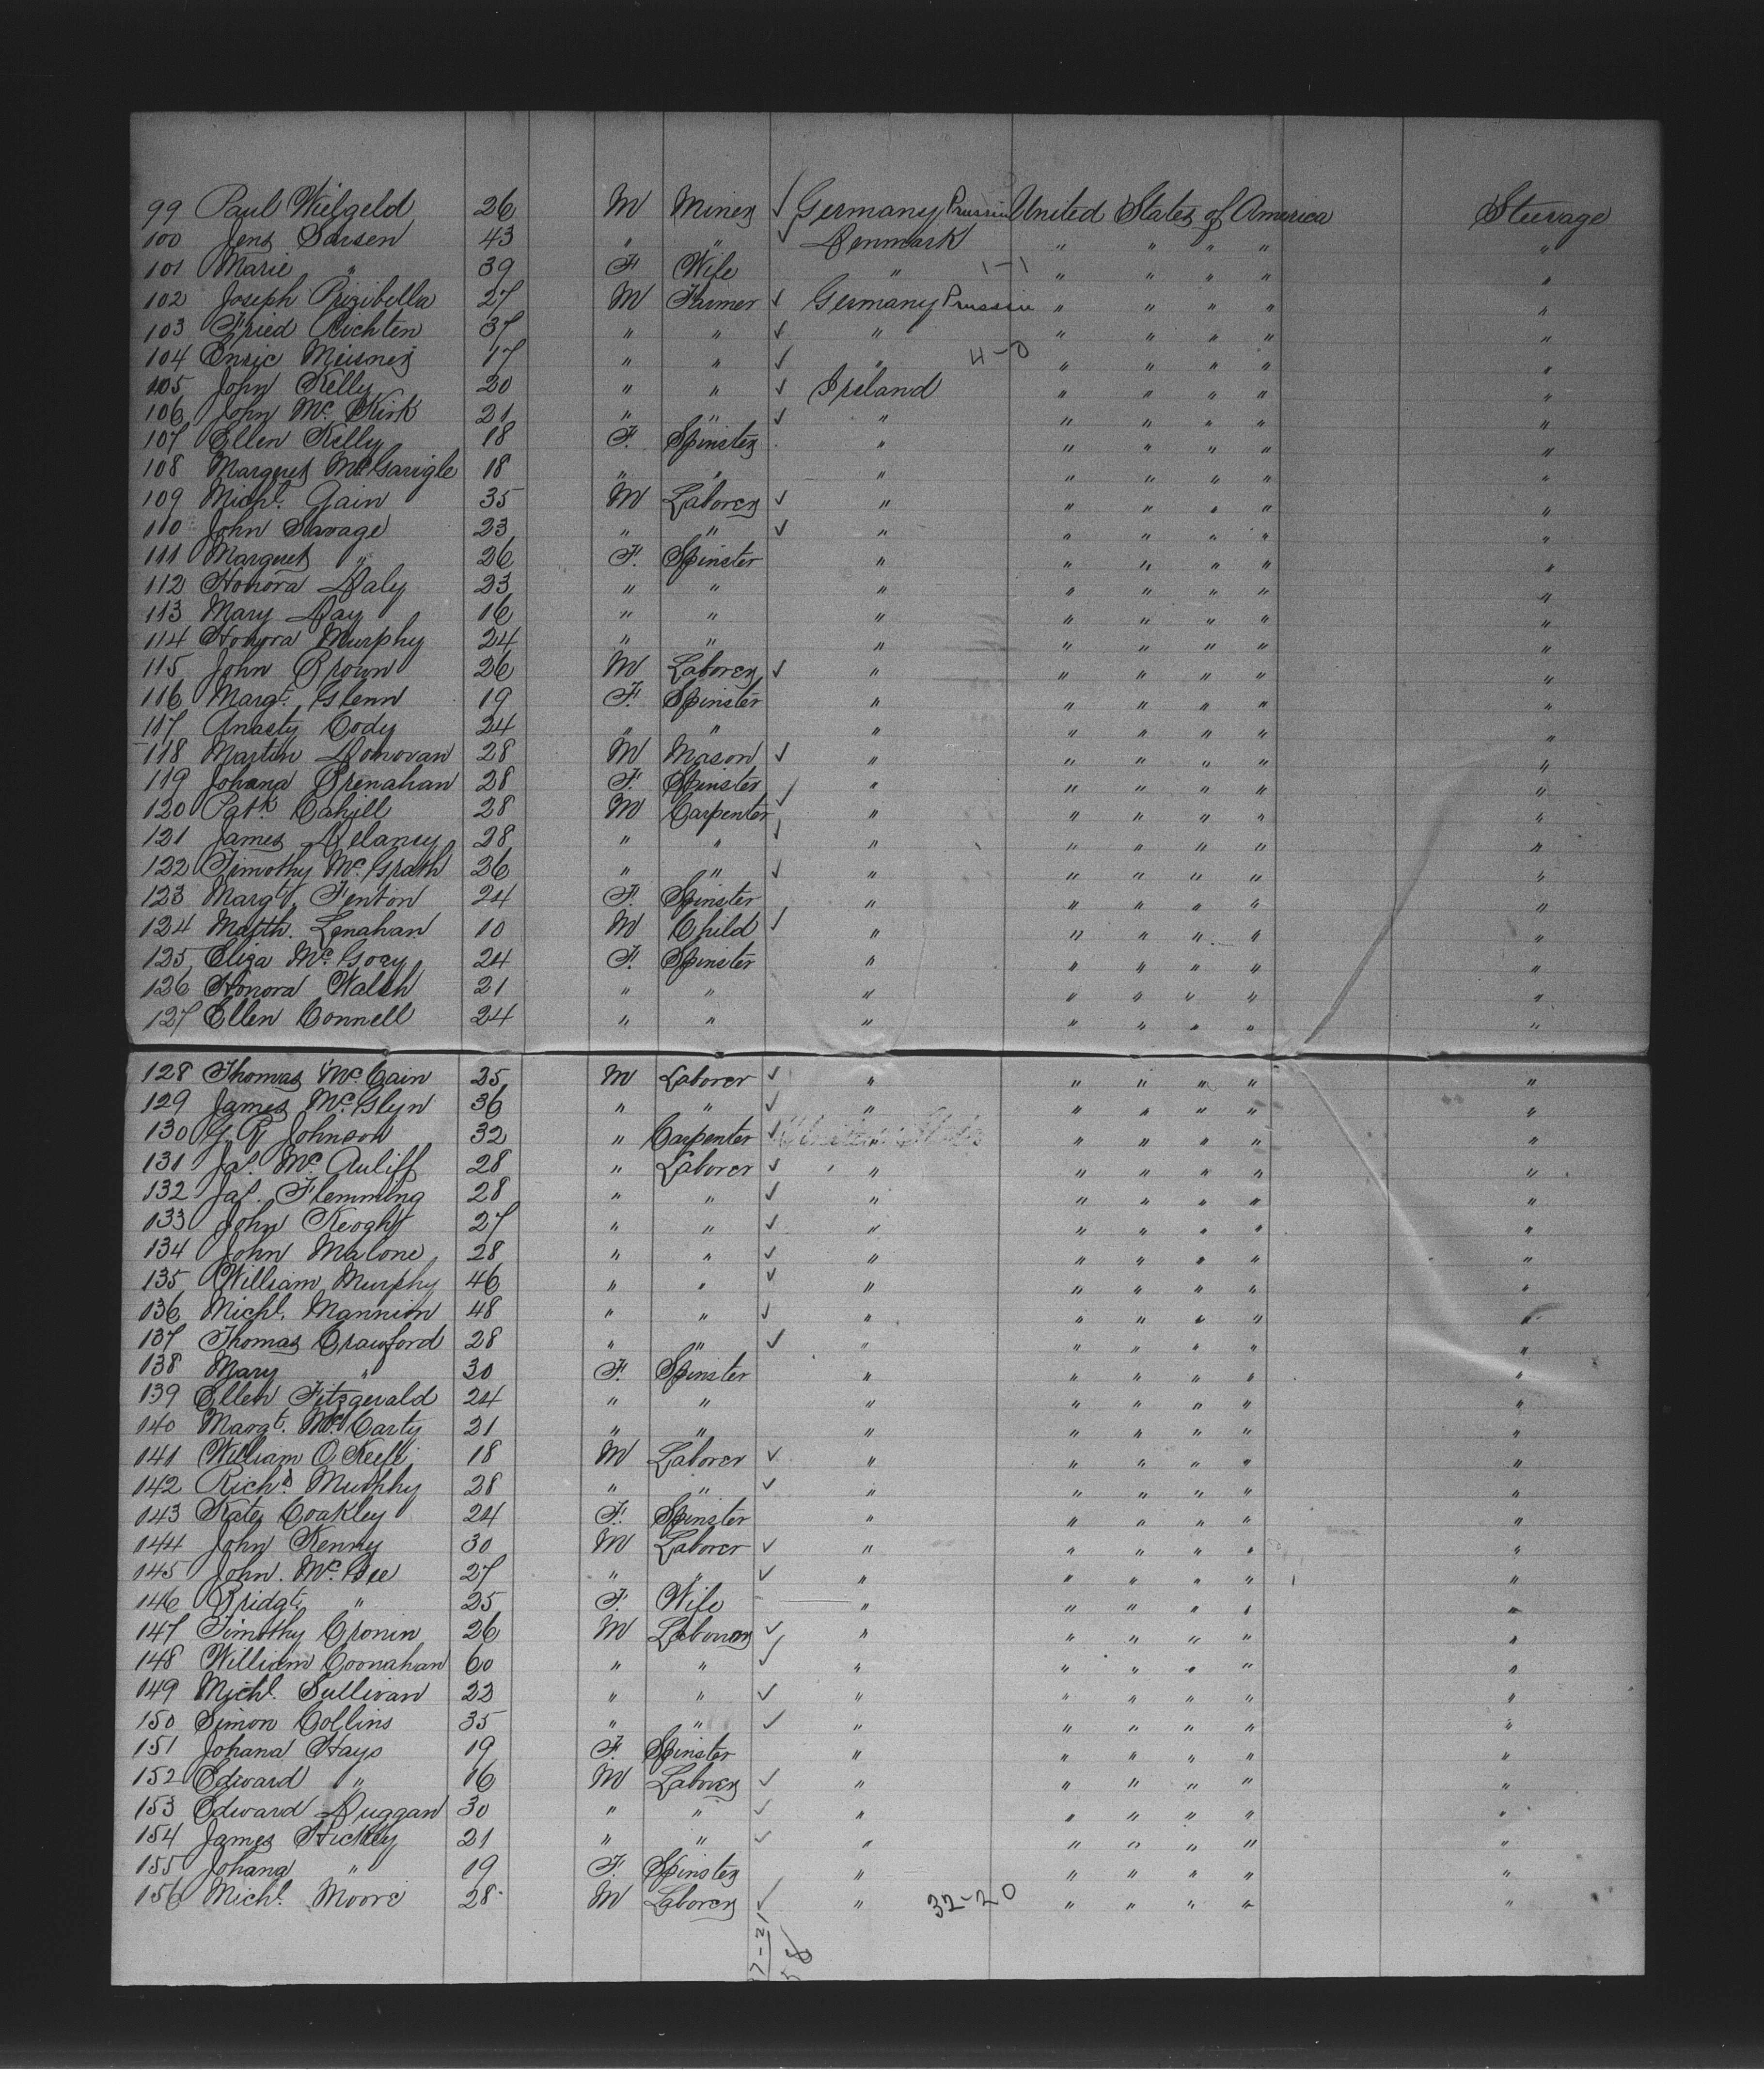 99 Paul Wielgeld 26 M Miner ✓ Germany Prussia United States of America Steerage
100 Jens Sarsen 43 " " ✓ Denmark " " " " "
101 Marie " 39 F Wife " 1-1 " " " " "
102 Joseph Prizibella 27 M Farmer ✓ Germany Prussia " " " " "
103 Fried Richten 37 " " ✓ " " " " " "
104 Enric Meisner 17 " " ✓ " 4-0 " " " " "
105 John Kelly 20 " " ✓ Ireland " " " " "
106 John Mc Kirk 21 " " ✓ " " " " " "
107 Ellen Kelly 18 F. Spinster " " " " " "
108 Margret McGarigle 18 " " " " " " " "
109 Michl. Gain 35 M Laborer ✓ " " " " " "
110 John Savage 23 " " ✓ " " " " " "
111 Margret " 26 F. Spinster " " " " " "
112 Honora Daly 23 " " " " " " " "
113 Mary Day 16 " " " " " " " "
114 Honora Murphy 24 " " " " " " " "
115 John Brown 26 M Laborer ✓ " " " " " "
116 Margt. Glenn 19 F. Spinster " " " " " "
117 Anasty Cody 24 " " " " " " " "
118 Martin Donovan 28 M Mason ✓ " " " " " "
119 Johana Brenahan 28 F. Spinster " " " " " "
120 Patk Cahill 28 M Carpenter ✓ " " " " " "
121 James Delaney 28 " " ✓ " " " " " "
122 Timothy Mc. Grath 26 " " ✓ " " " " " "
123 Margt. Fenton 24 F. Spinster " " " " " "
124 Matth. Lenahan 10 M Child ✓ " " " " " "
125 Eliza Mc. Goey 24 F. Spinster " " " " " "
126 Honora Walsh 21 " " " " " " " "
127 Ellen Connell 24 " " " " " " " "
128 Thomas Mc. Cain 25 M Laborer ✓ " " " " " "
129 James Mc. Glyn 36 " " ✓ " " " " " "
130 G R Johnson 32 " Carpenter ✓ United States " " " " " "
131 Jas. Mc. Auliff 28 " Laborer ✓ " " " " " "
132 Jas. Flemming 28 " " ✓ " " " " " "
133 John Keoght 27 " " ✓ " " " " " "
134 John Malone 28 " " ✓ " " " " " "
135 William Murphy 46 " " ✓ " " " " " "
136 Michl. Mannion 48 " " ✓ " " " " " "
137 Thomas Crawford 28 " " ✓ " " " " " "
138 Mary " 30 F. Spinster " " " " " "
139 Ellen Fitzgerald 24 " " " " " " " "
140 Margt. Mc. Carty 21 " " " " " " " "
141 William O Keefe 18 M Laborer ✓ " " " " " "
142 Richd. Murphy 28 " " ✓ " " " " " "
143 Kate Coakley 24 F. Spinster " " " " " "
144 John Kenny 30 M Laborer ✓ " " " " " "
145 John. Mc. Gee 27 " " ✓ " " " " " "
146 Bridgt. " 25 F. Wife " " " " " "
147 Timothy Cronin 26 M Laborer ✓ " " " " " "
148 William Coonahan 60 " " ✓ " " " " " "
149 Michl. Sullivan 22 " " ✓ " " " " " "
150 Simon Collins 35 " " ✓ " " " " " "
151 Johana Hays 19 F. Spinster " " " " " "
152 Edward " 16 M Laborer ✓ " " " " " "
153 Edward Duggan 30 " " ✓ " " " " " "
154 James Hickey 21 " " ✓ " " " " " "
155 Johana " 19 F. Spinster " " " " " "
156 Michl. Moore 28 M Laborer ✓ " 32-20 " " " " "
37-21
58